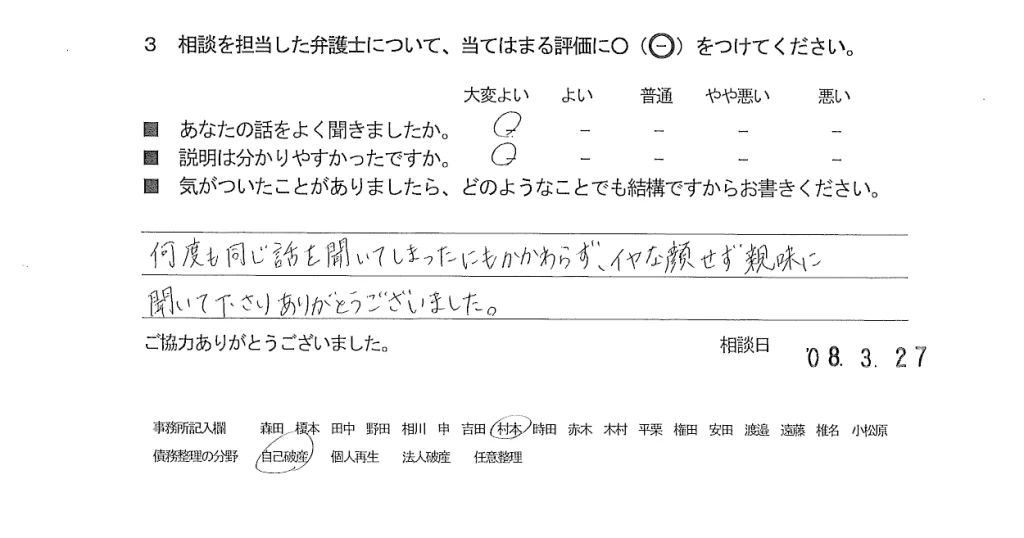 3 相談を担当した弁護士について、当てはまる評価に○（㊀）をつけてください。
大変よい よい 普通 やや悪い 悪い
■ あなたの話をよく聞きましたか。 − − − − −
■ 説明は分かりやすかったですか。 − − − − −
■ 気がついたことがありましたら、どのようなことでも結構ですからお書きください。
何度も同じ話を聞いてしまったにもかかわらず、イヤな顔せず親味に
聞いて下さりありがとうございました。
ご協力ありがとうございました。 相談日 '08. 3. 27
事務所記入欄 森田 榎本 田中 野田 相川 申 吉田 村本 時田 赤木 木村 平栗 権田 安田 渡邉 遠藤 椎名 小松原
債務整理の分野 自己破産 個人再生 法人破産 任意整理